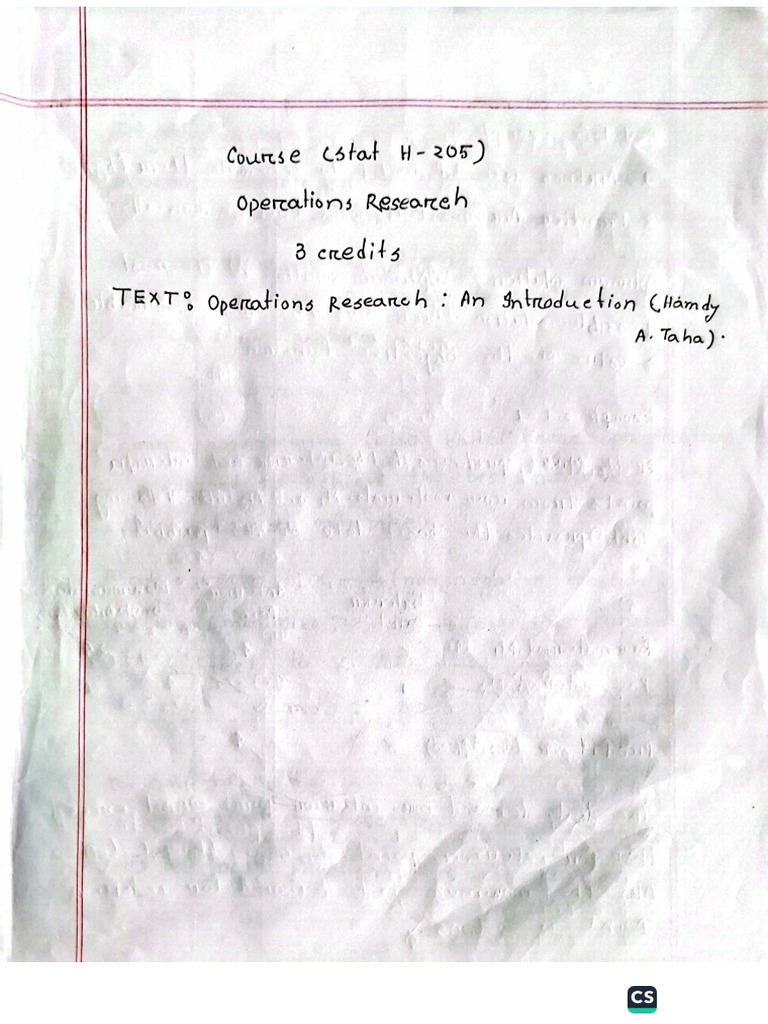 Course (Stat H-205)
Operations Research
3 credits
TEXT: Operations Research : An Introduction (Hamdy
A. Taha).
CS